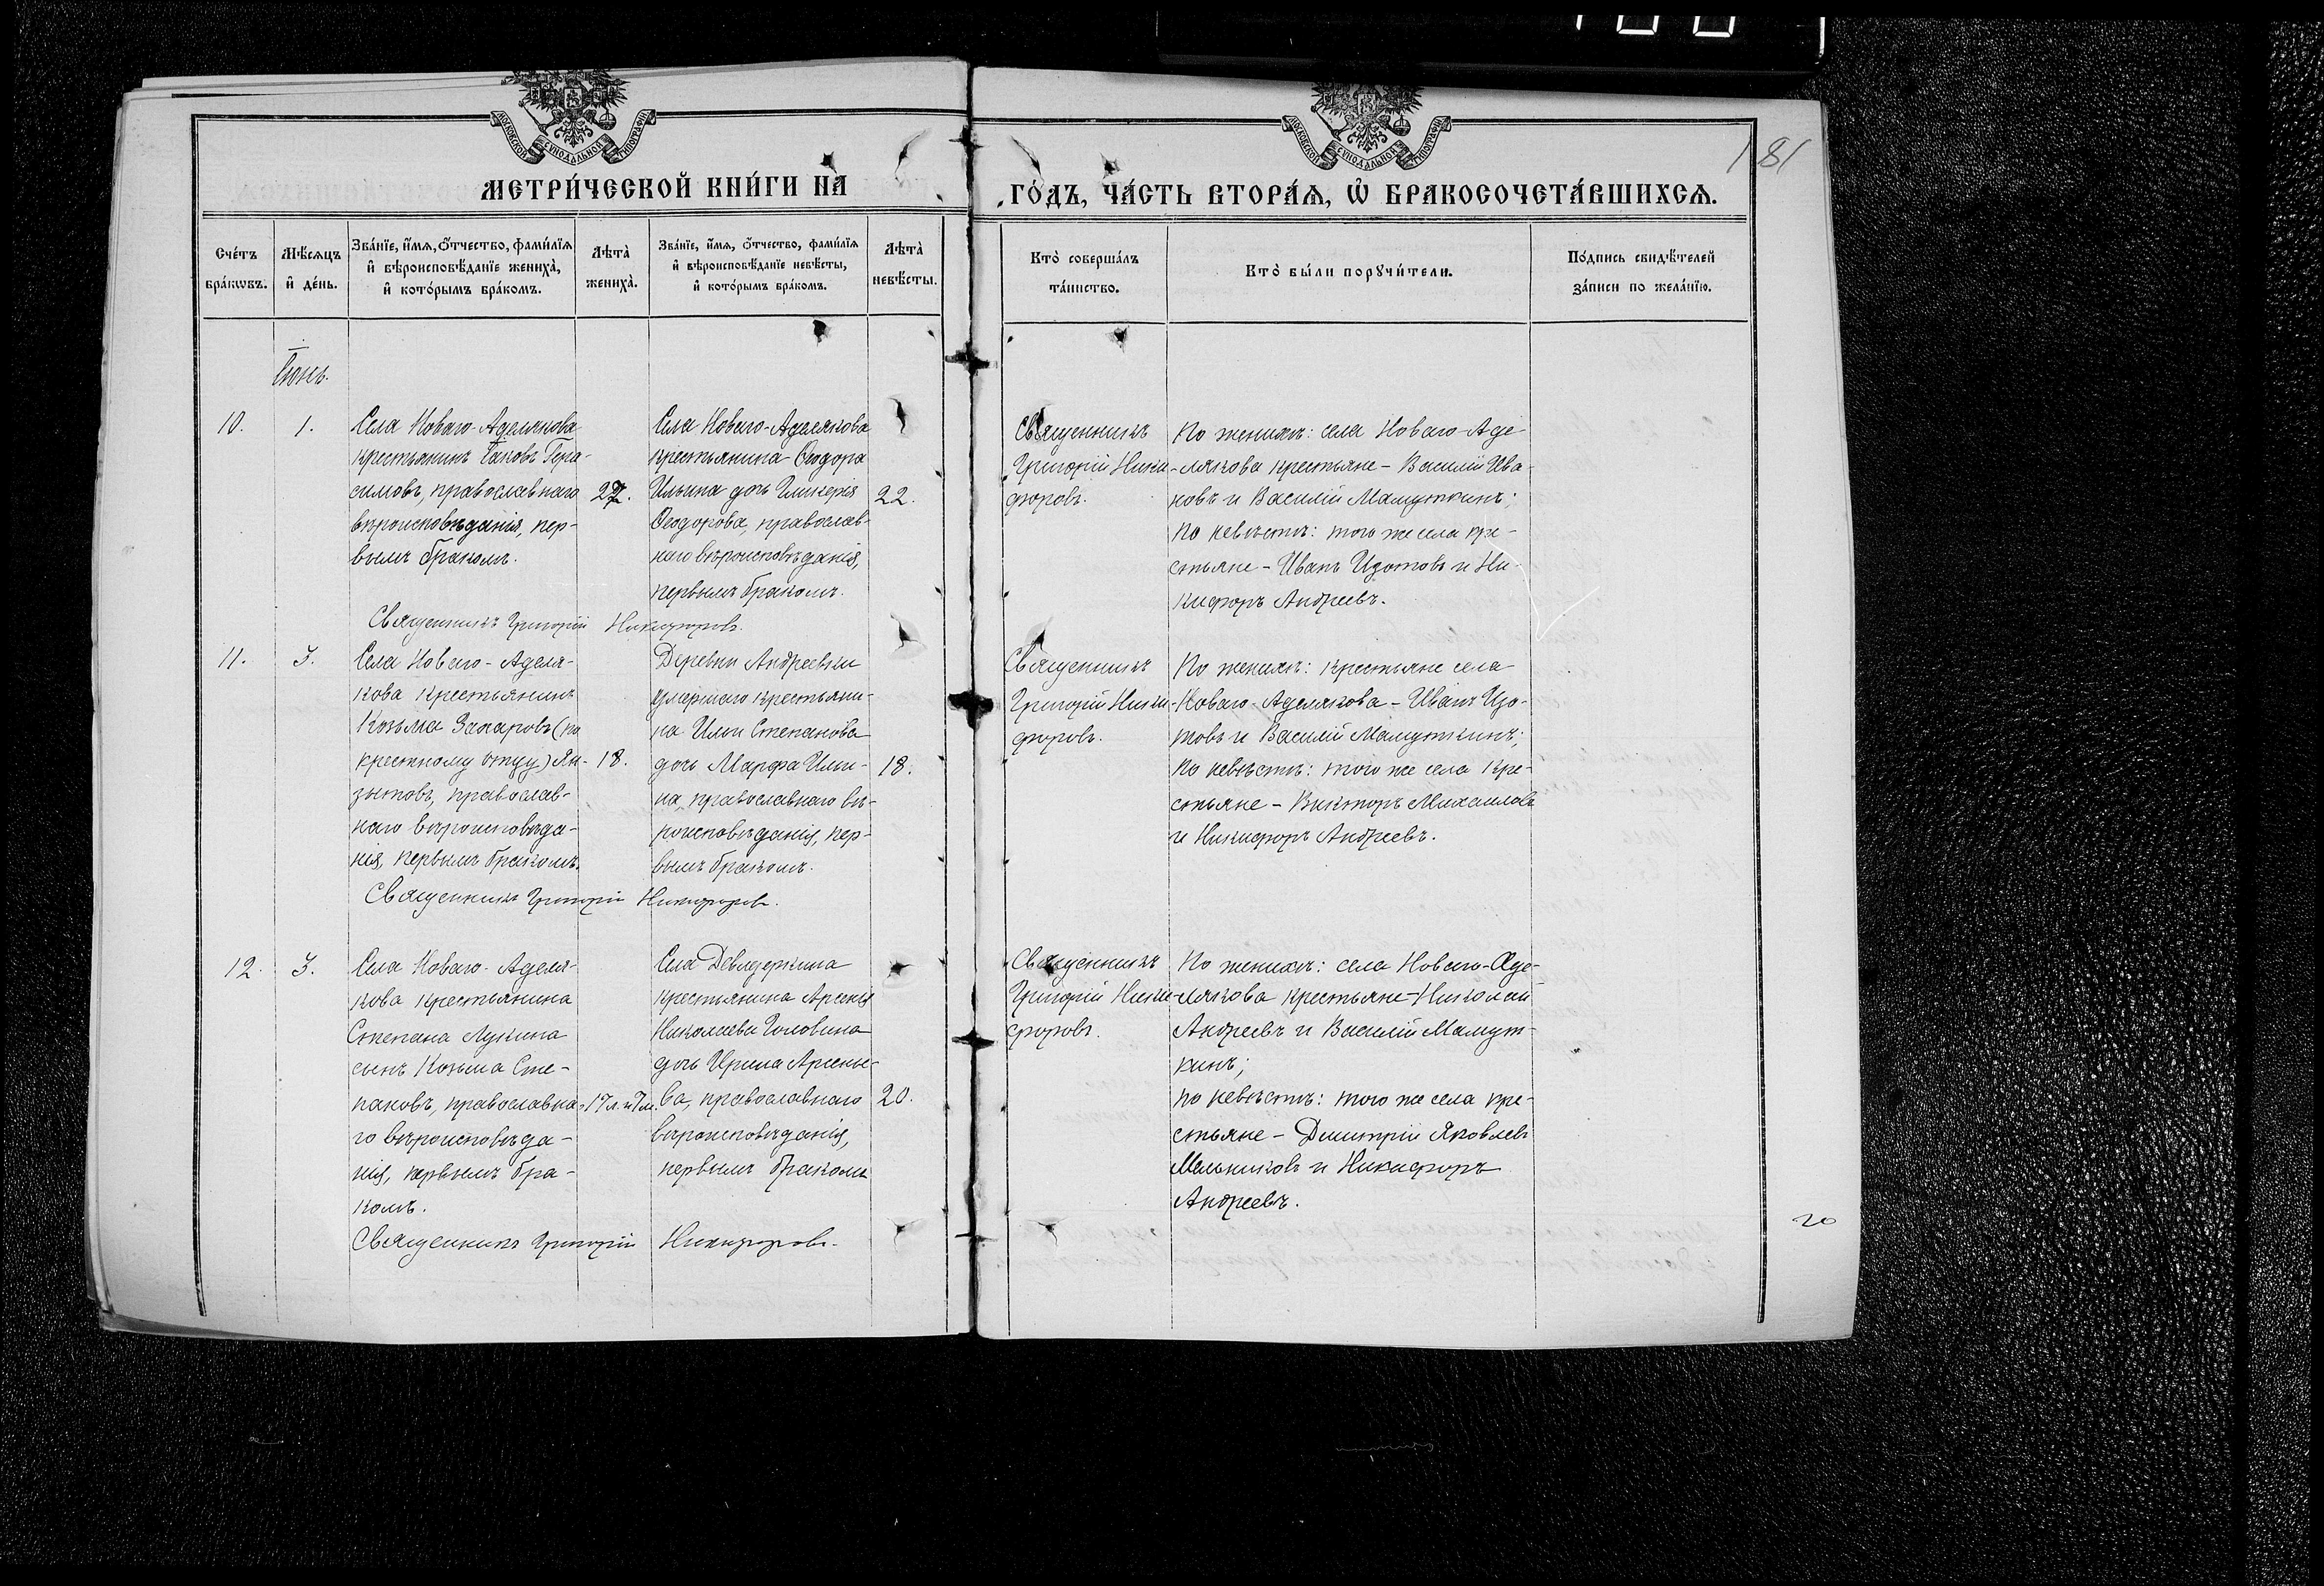 181
МОСКОВСКОЙ СУНОДАЛЬНОЙ ТИПОГРАФІИ
МОСКОВСКОЙ СУНОДАЛЬНОЙ ТИПОГРАФІИ
МЕТРИ́ЧЕСКОЙ КНИ́ГИ НА
ГО́ДЪ, ЧА́СТЬ ВТОРА́Ѧ, Ѽ БРАКОСОЧЕТА́ВШИХСѦ.
Сче́тъ
бра́кѡвъ.
Мѣ́сѧцъ
и҆ де́нь.
Зва́нїе, и҆́мѧ, ѻ҆́тчество, фами́лїѧ
и҆ вѣроисповѣ́данїе жениха̀,
и҆ кото́рымъ бра́комъ.
Лѣта̀
жениха̀.
Зва́нїе, и҆́мѧ, ѻ҆́тчество, фами́лїѧ
и҆ вѣроисповѣ́данїе невѣ́сты,
и҆ кото́рымъ бра́комъ.
Лѣта̀
невѣ́сты.
Кто̀ соверша́лъ
та́инство.
Кто̀ бы́ли порꙋчи́тели.
По́дпись свидѣ́телей
за́писи по жела́нїю.
Іюнь.
10.
1.
Села Новаго-Аделякова
крестьянинъ Іаковъ Гера-
симовъ, православнаго
вѣроисповѣданія, пер-
вымъ бракомъ.
27.
Села Новаго-Аделякова
крестьянина Ѳеодора
Ильина дочь Гликерія
Ѳеодорова, православ-
наго вѣроисповѣданія,
первымъ бракомъ.
22.
Священникъ
Григорій Ники-
форовъ.
По женихѣ: села Новаго-Аде-
лякова крестьяне - Василій Ива-
новъ и Василій Мамуткинъ;
по невѣстѣ: того же села кре-
стьяне - Иванъ Изотовъ и Ни-
кифоръ Андреевъ.
Священникъ Григорій Никифоровъ.
11.
3.
Села Новаго-Аделя-
кова крестьянинъ
Козьма Захаровъ (по
крестному отцу) Ян-
зытовъ, православ-
наго вѣроисповѣда-
нія, первымъ бракомъ.
18.
Деревни Андреевки
умершаго крестьяни-
на Ильи Степанова
дочь Марфа Ильи-
на, православнаго вѣ-
роисповѣданія, пер-
вымъ бракомъ.
18.
Священникъ
Григорій Ники-
форовъ.
По женихѣ: крестьяне села
Новаго-Аделякова - Иванъ Изо-
товъ и Василій Мамуткинъ;
по невѣстѣ: того же села кре-
стьяне - Викторъ Михаиловъ
и Никифоръ Андреевъ.
Священникъ Григорій Никифоровъ.
12.
3.
Села Новаго-Аделя-
кова крестьянина
Степана Лукина
сынъ Козьма Сте-
пановъ, православна-
го вѣроисповѣда-
нія, первымъ бра-
комъ.
17 л. и 7 м.
Села Девлезеркина
крестьянина Арсенія
Николаева Головина
дочь Ирина Арсенье-
ва, православнаго
вѣроисповѣданія,
первымъ бракомъ
20.
Священникъ
Григорій Ники-
форовъ.
По женихѣ: села Новаго-Аде-
лякова крестьяне - Николай
Андреевъ и Василій Мамут-
кинъ;
по невѣстѣ: того же села кре-
стьяне - Димитрій Яковлевъ
Мельниковъ и Никифоръ
Андреевъ.
Священникъ Григорій Никифоровъ.
20